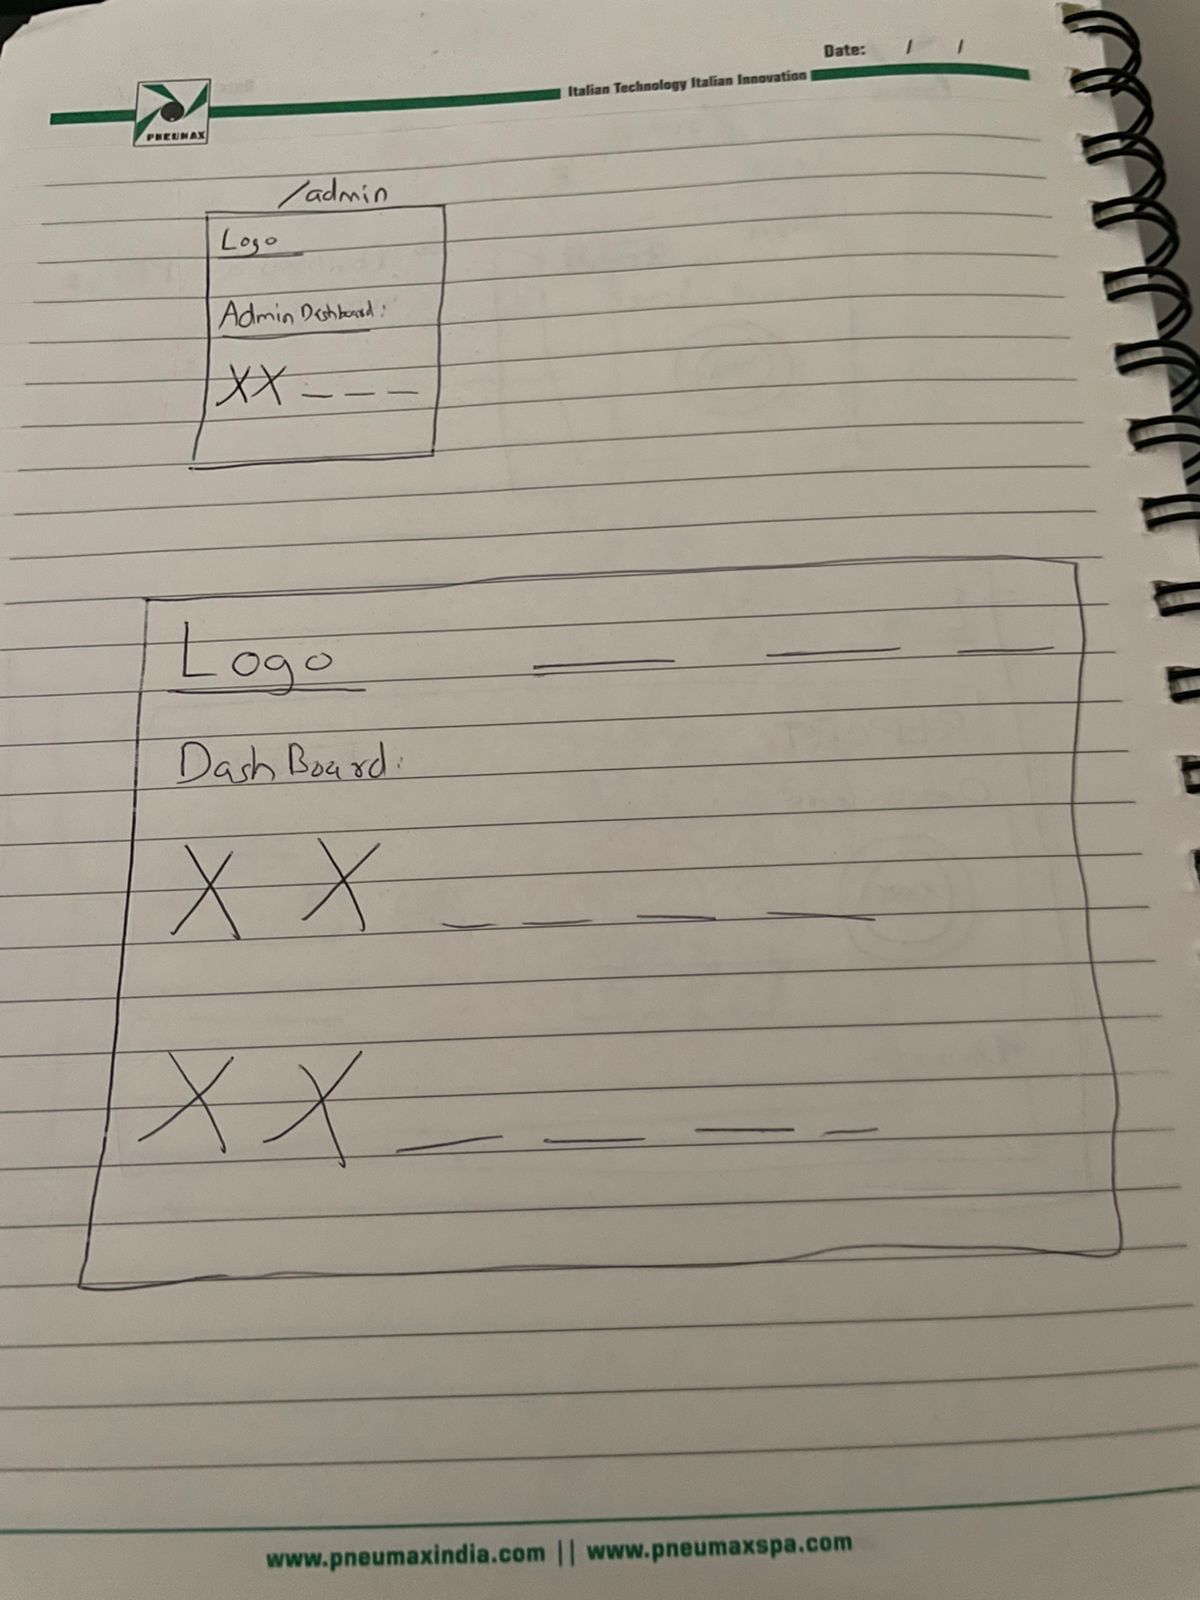 Date: / /
Italian Technology Italian Innovation
PNEUMAX
/admin
Logo
Admin Dashboard:
XX _ _ _
Logo
DashBoard:
X X _ _ _ _
X X _ _ _ _
www.pneumaxindia.com || www.pneumaxspa.com